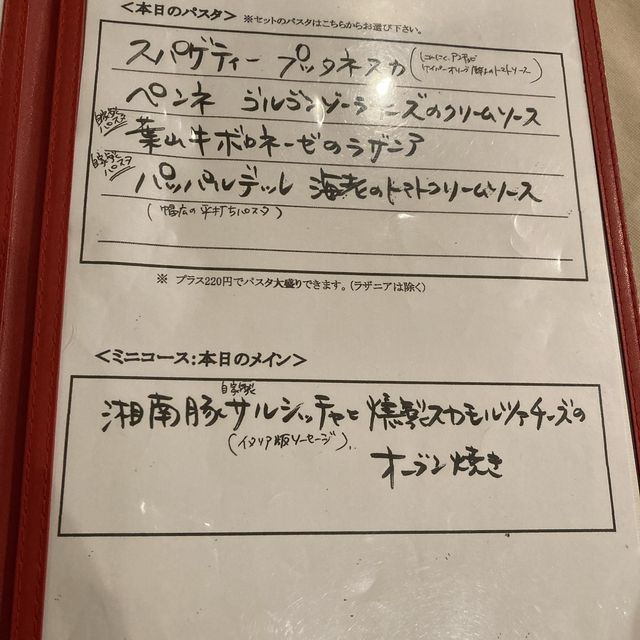 ＜本日のパスタ＞ ※セットのパスタはこちらからお選び下さい。
スパゲティー プッタネスカ (にんにく、アンチョビ
ケイパー オリーブ 入りのトマトソース)
ペンネ ゴルゴンゾーラチーズのクリームソース
自家製
パスタ
葉山牛ボロネーゼのラザニア
自家製
パスタ
パッパルデッレ 海老のトマトクリームソース
(幅広の平打ちパスタ)
※ プラス220円でパスタ大盛りできます。(ラザニアは除く)
＜ミニコース：本日のメイン＞
自家製
湘南豚サルシッチャと 燻製スカモルツァチーズの
(イタリア版ソーセージ)
オーブン焼き